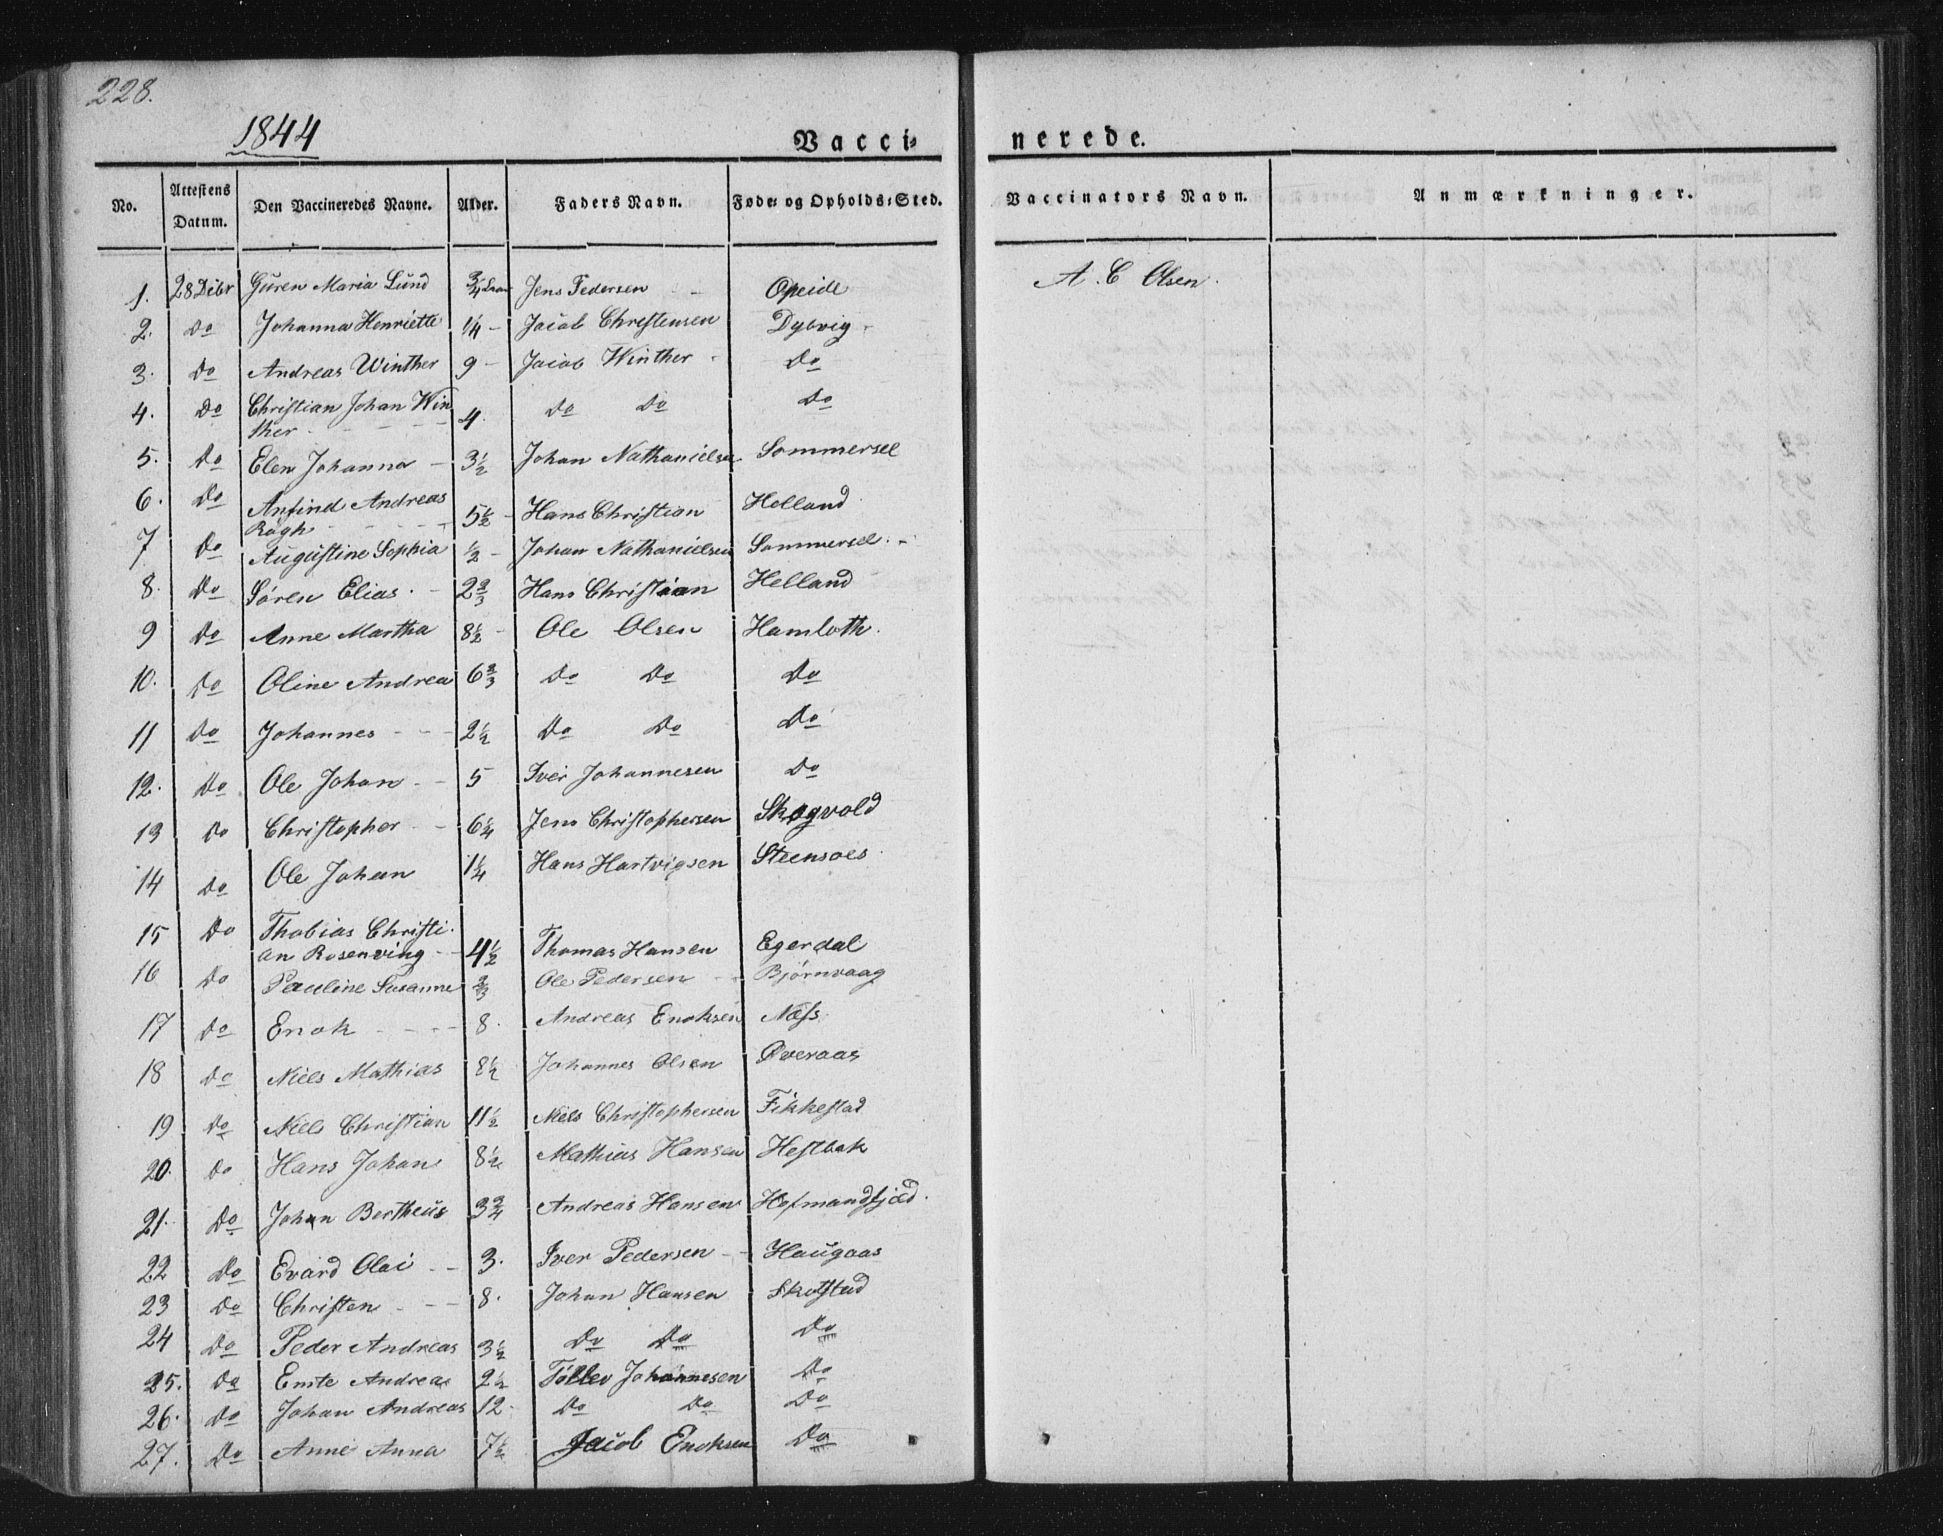 228.
1844
Vacci-
nerede.
No. Attestens Datum. Den Vaccineredes Navne. Alder. Faders Navn. Føde- og Opholds-Sted. Vaccinators Navn. Anmærkninger.
1. 28 Dcbr Guren Maria Lund 3/4 Jens Pedersen Opeide A. C Olsen.
2. Do Johanna Henriette 1/4 - Jacob Christensen Dybvig -
3. Do Andreas Winther 9 - Jacob Winther - Do
4. Do Christian Johan Win
ther - 4. Do Do Do
5. Do Elen Johanna - 3 1/2 Johan Nathanielsen Sommersel
6. Do Anfind Andreas
Rögh - 5 1/2 - Hans Christian Helland
7 Do Augustine Sophia 1/2 - Johan Nathanielsen Sommersel. -
8. Do Sören Elias. - 2 2/3 Hans Christian Helland
9 Do Anne Martha 8 1/2 - Ole Olsen Hamloth.
10. Do Oline Andrea 6 2/3 Do Do Do
11 Do Johannes - - - 2 1/2 Do Do Do
12. Do Ole Johan - - 5 Iver Johannesen Do
13 Do Christopher - - 6 1/4 Jens Christophersen Skogvold
14 Do Ole Johan 1 1/4 Hans Hartvigsen Steensoes
15 Do Thobias Christi-
an Rosenving - - 4 1/2 Thomas Hansen Egerdal
16 Do Pauline Susanne 2/3 Ole Pedersen - - Bjørnvaag
17 Do Enok - - - - 8. Andreas Enoksen Næss
18 Do Niels Mathias 8 1/2 Johannes Olsen Øveraas
19 Do Niels Christian 11 1/2 Niels Christophersen Fikkestad
20. Do Hans Johan 8 1/2 Mathias Hansen Hestbak
21. Do Johan Bertheus 3 3/4 Andreas Hansen Hofmandsfjæld.
22 Do Evard Olai - - 3. Iver Pedersen - - Haugaas
23 Do Christen - - - 8. Johan Hansen Skotstad
24 Do Peder Andreas 3 1/2 Do Do Do
25. Do Emte Andreas 2 1/2 Tollev Johannesen Do
26. Do Johan Andreas 12. Do Do Do
27. Do Anne Anna 7 1/2 Jacob Enoksen Do